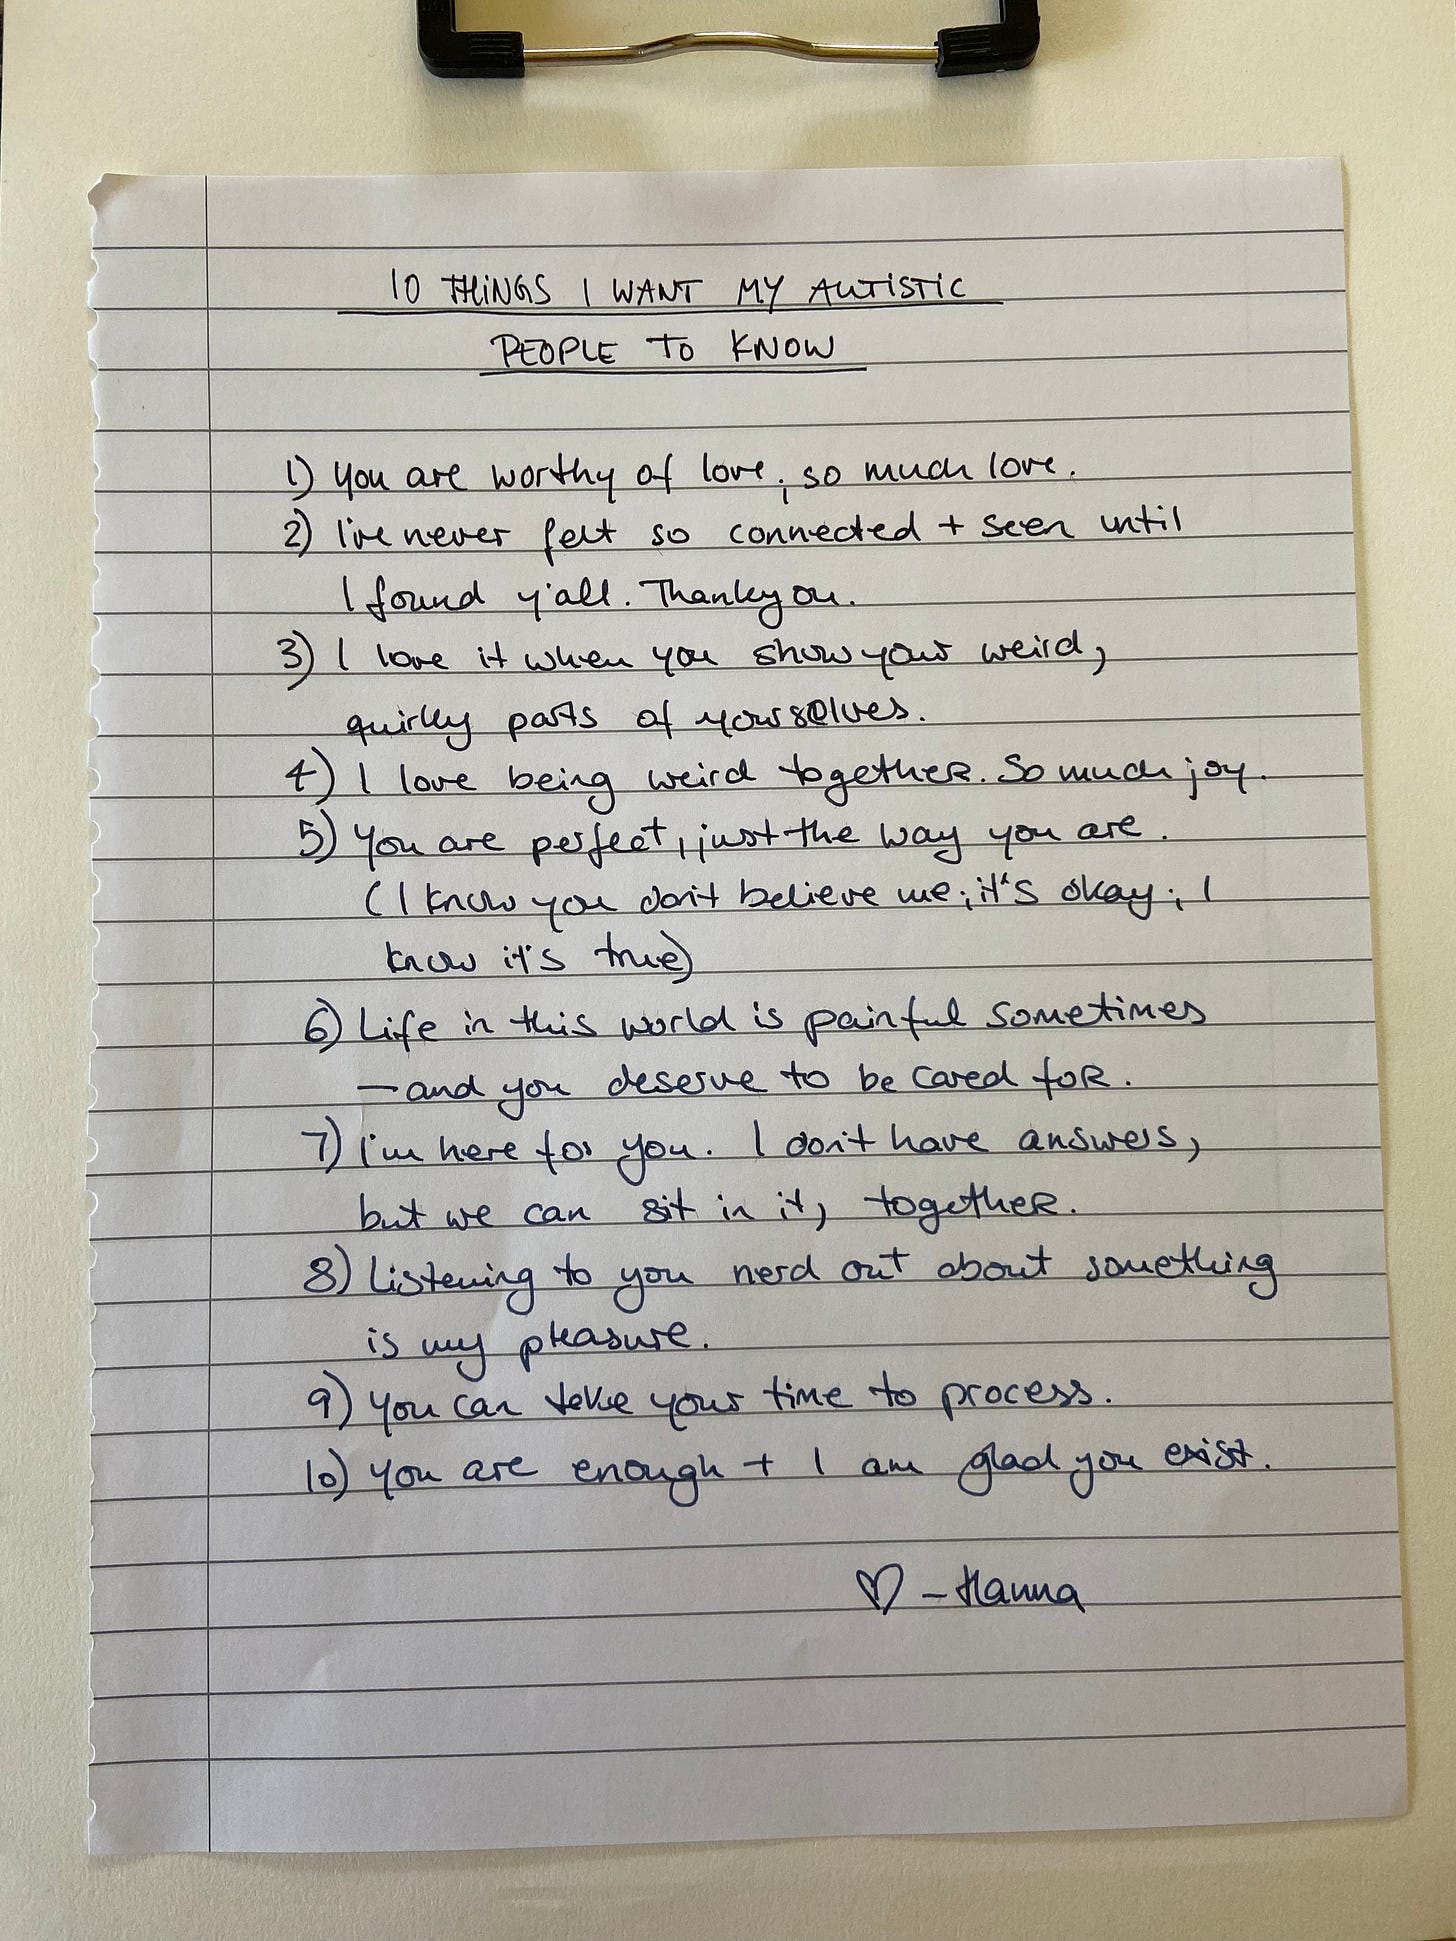 10 THINGS I WANT MY AUTISTIC
PEOPLE TO KNOW
1) You are worthy of love; so much love.
2) I've never felt so connected + seen until
I found y'all. Thank you.
3) I love it when you show your weird,
quirky parts of yourselves.
4) I love being weird together. So much joy.
5) You are perfect, just the way you are.
(I know you don't believe me; it's okay; I
know it's true)
6) Life in this world is painful sometimes
—and you deserve to be cared for.
7) I'm here for you. I don't have answers,
but we can sit in it, together.
8) Listening to you nerd out about something
is my pleasure.
9) You can take your time to process.
10) You are enough + I am glad you exist.
♡ – Hanna